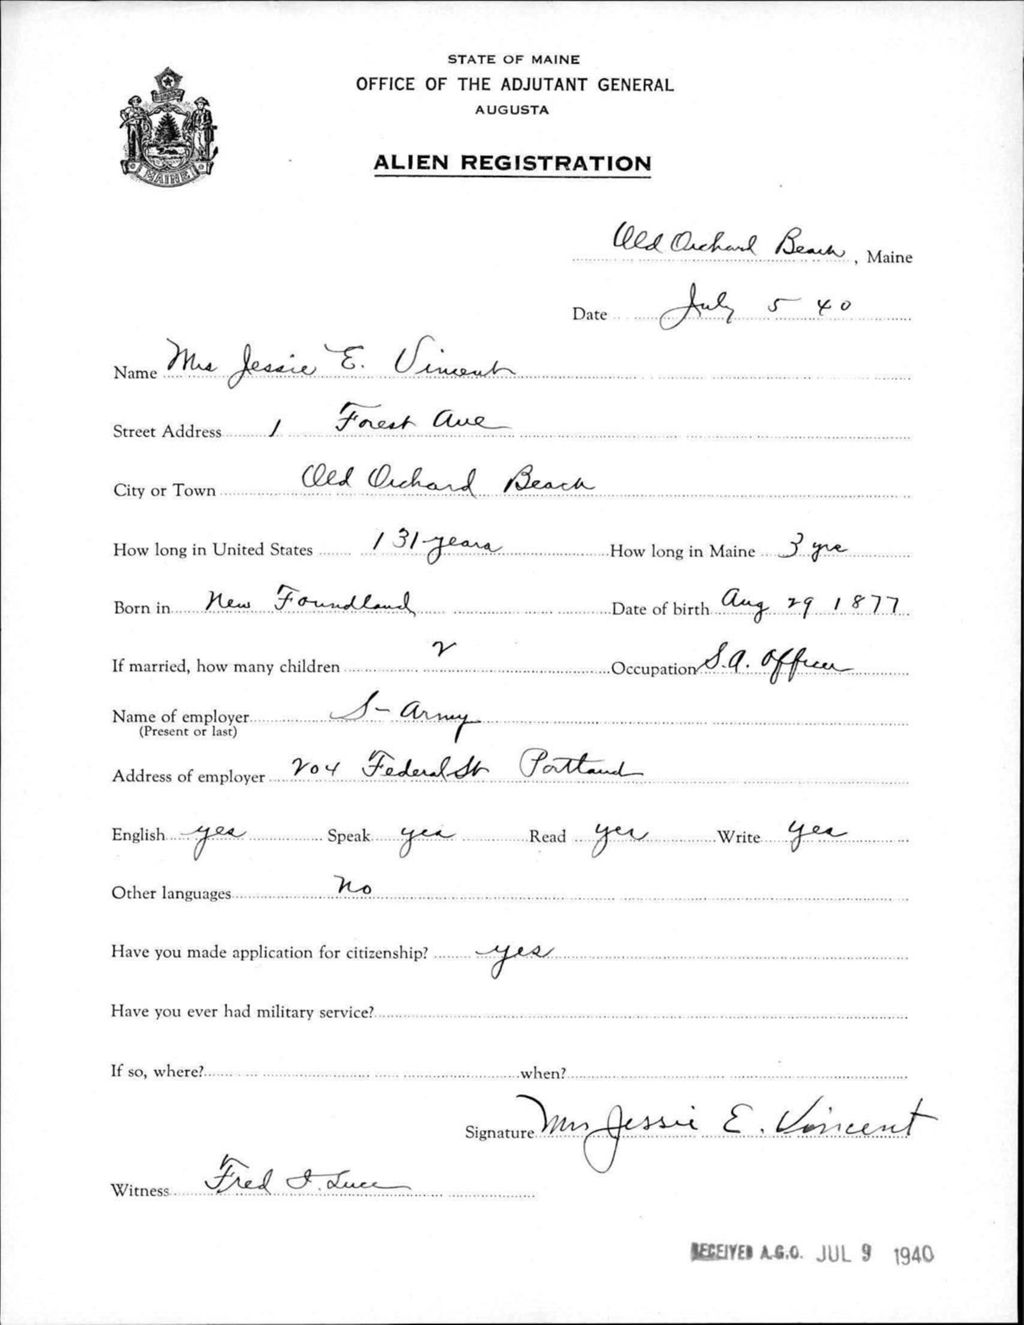 STATE OF MAINE
OFFICE OF THE ADJUTANT GENERAL
AUGUSTA
ALIEN REGISTRATION
MAINE
Old Orchard Beach, Maine
Date July 5 40
Name Mrs Jessie E. Vincent
Street Address 1 Forest Ave
City or Town Old Orchard Beach
How long in United States 31 years How long in Maine 3 yrs
Born in New Foundland Date of birth Aug 29 1877
If married, how many children 2 Occupation S.A. Officer
Name of employer S- Army
(Present or last)
Address of employer 204 Federal St Portland
English yes Speak yes Read yes Write yes
Other languages no
Have you made application for citizenship? yes
Have you ever had military service?
If so, where? when?
Signature Mrs Jessie E. Vincent
Witness Fred I. Luce
RECEIVED A.G.O. JUL 9 1940